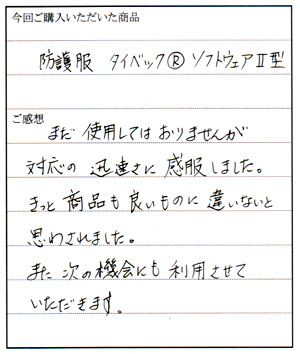 今回ご購入いただいた商品
防護服 タイベック® ソフトウェアⅡ型
ご感想
まだ使用してはおりませんが
対応の迅速さに感服しました。
きっと商品も良いものに違いないと
思わされました。
また次の機会にも利用させて
いただきます。